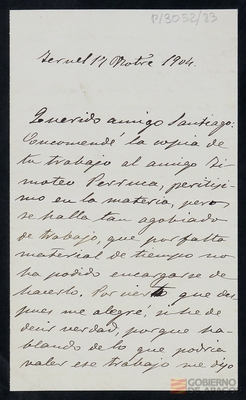 P/3052/23
Teruel 17 Nobre 1904.
Querido amigo Santiago:
Encomendé la copia de
tu trabajo al amigo Ti-
moteo Perruca, peritísi-
mo en la materia, pero
se halla tan agobiado
de trabajo, que por falta
material de tiempo no
ha podido encargarse de
hacerlo. Por cierto que des-
pues me alegré, si he de
decir verdad, porque ha-
blando de lo que podria
valer ese trabajo me dijo
GOBIERNO
DE ARAGON